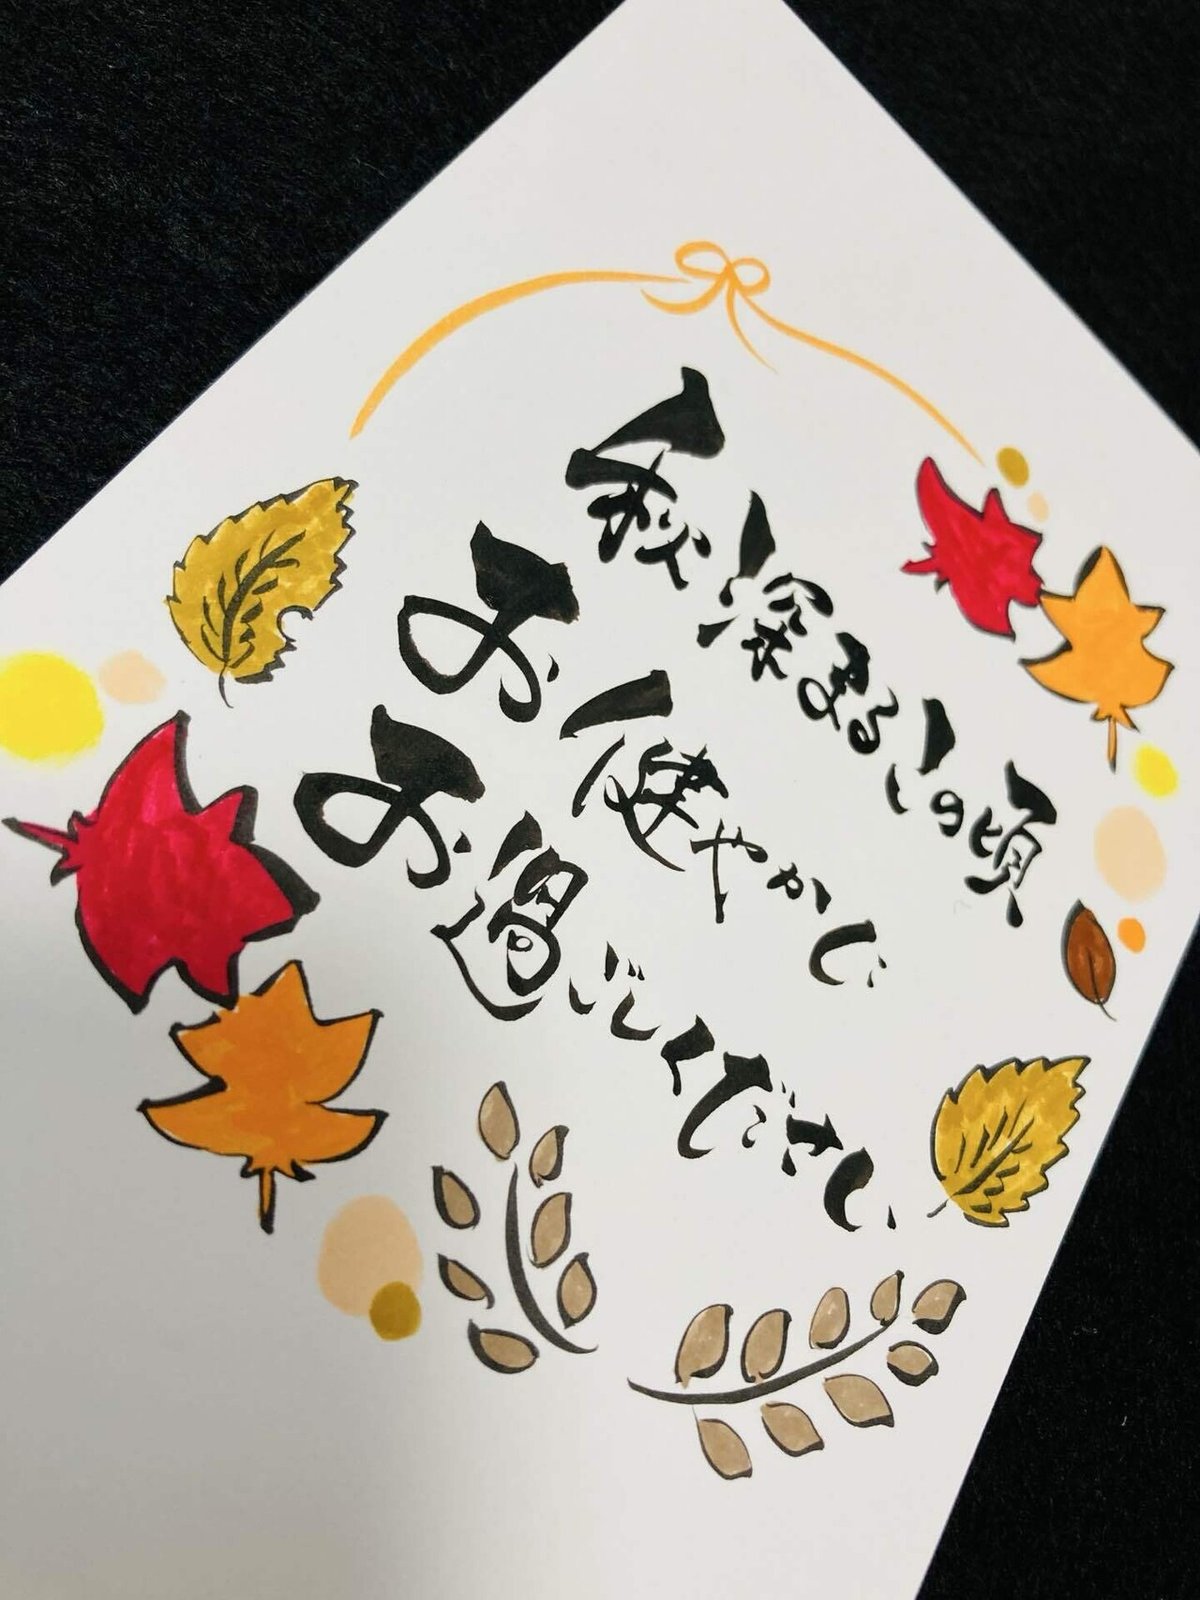 秋深まるこの頃
お健やかに
お過ごしください